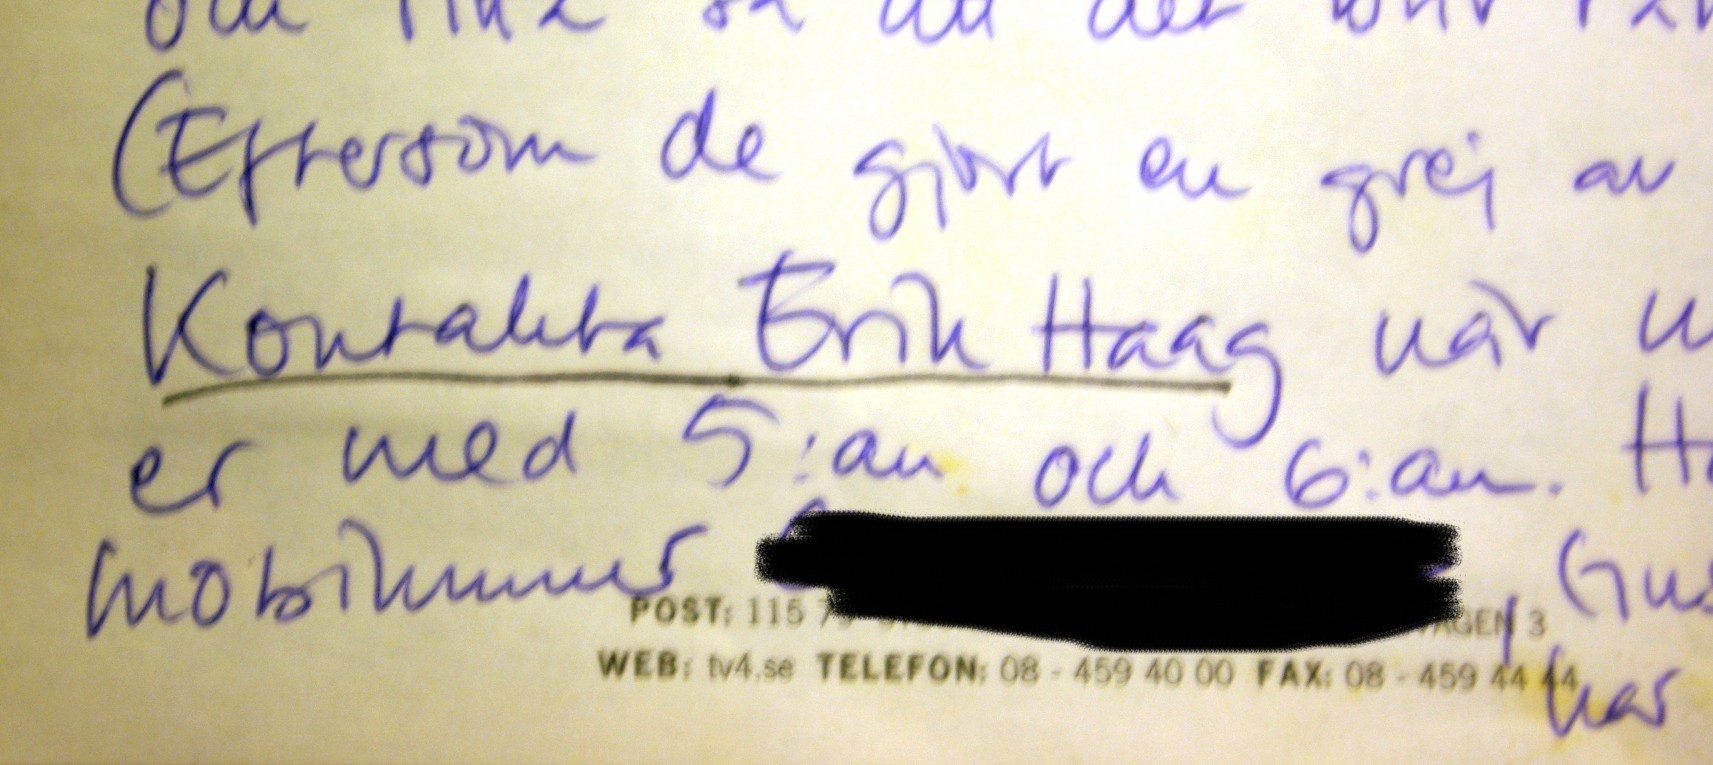 så att det blir
(Eftersom de gjort en grej av
Kontakta Erik Haag när
er med 5:an och 6:an.
mobilnummer
POST: 115 VÄGEN 3
WEB: tv4.se TELEFON: 08 - 459 40 00 FAX: 08 - 459 44 44
har